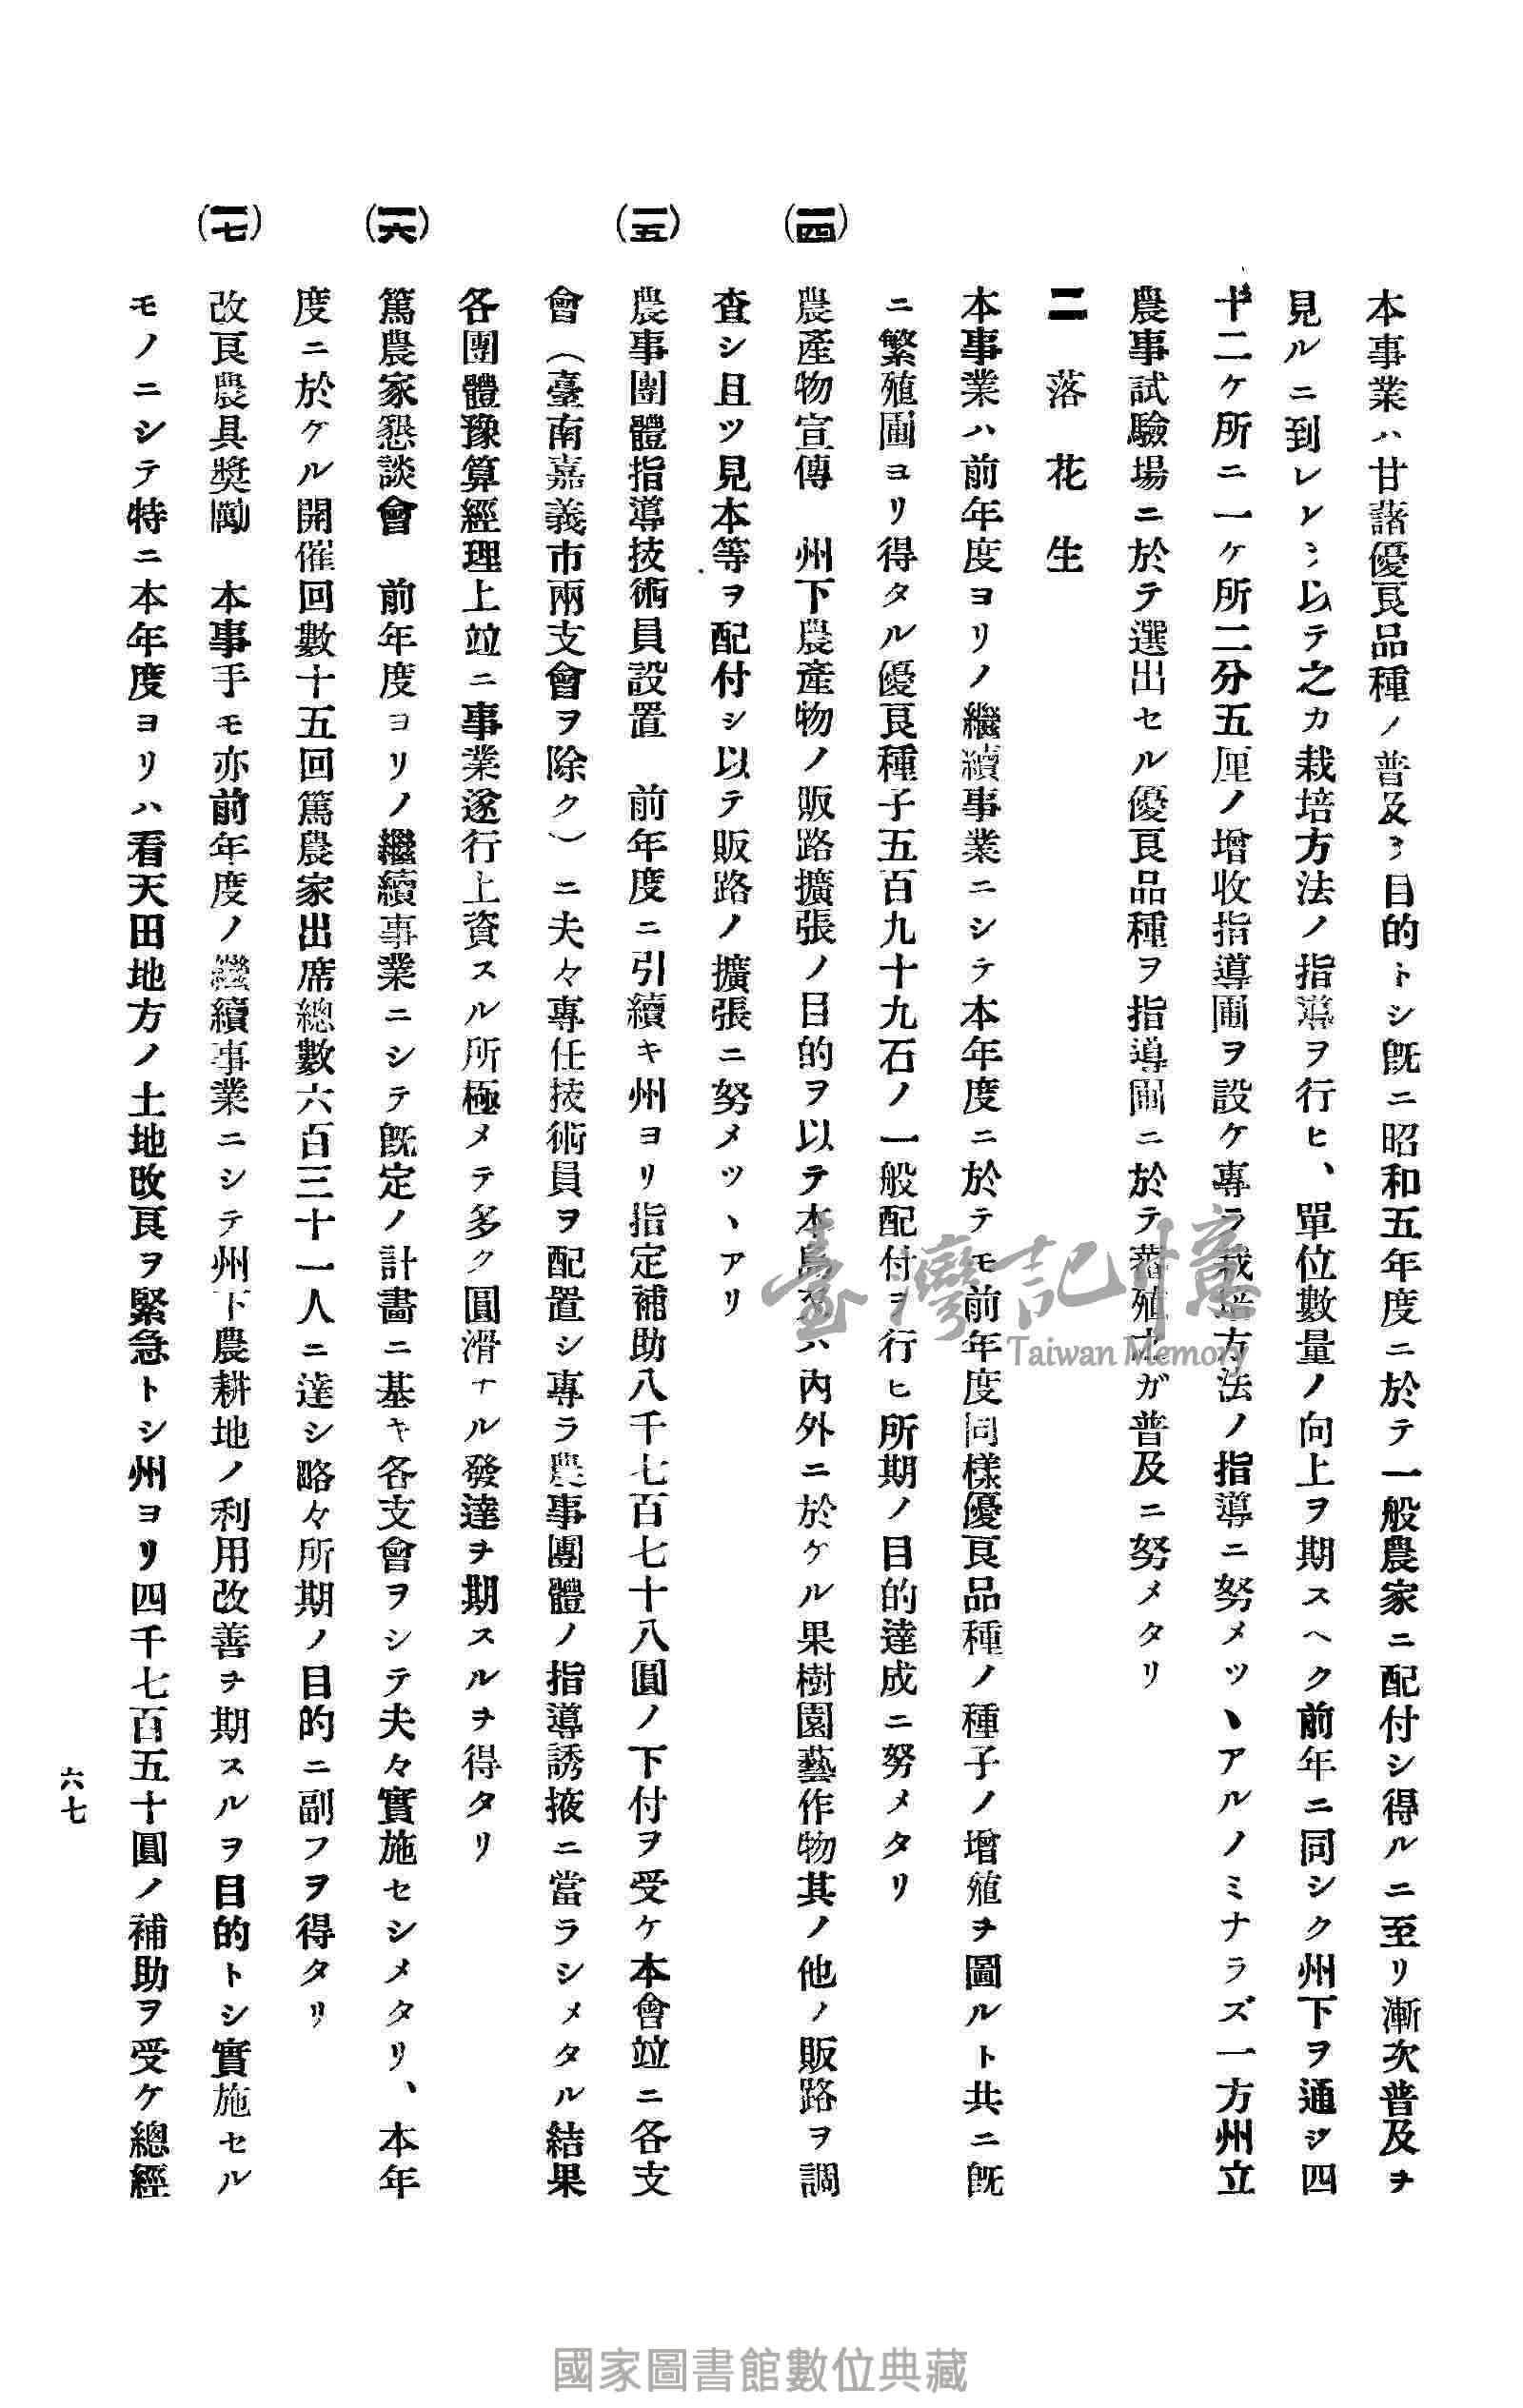 本事業ハ甘藷優良品種ノ普及ヲ目的トシ既ニ昭和五年度ニ於テ一般農家ニ配付シ得ルニ至リ漸次普及ヲ
見ルニ到レレシ以テ之カ栽培方法ノ指導ヲ行ヒ、單位數量ノ向上ヲ期スヘク前年ニ同シク州下ヲ通ジ四
十二ケ所ニ一ケ所二分五厘ノ增收指導圃ヲ設ケ專ラ栽培方法ノ指導ニ努メツヽアルノミナラズ一方州立
農事試驗場ニ於テ選出セル優良品種ヲ指導圃ニ於テ蕃殖之ガ普及ニ努メタリ
二 落花生
本事業ハ前年度ヨリノ繼續事業ニシテ本年度ニ於テモ前年度同樣優良品種ノ種子ノ增殖ヲ圖ルト共ニ既
ニ繁殖圃ヨリ得タル優良種子五百九十九石ノ一般配付ヲ行ヒ所期ノ目的達成ニ努メタリ
(一四) 農產物宣傳 州下農產物ノ販路擴張ノ目的ヲ以テ本島及ハ內外ニ於ケル果樹園藝作物其ノ他ノ販路ヲ調
查シ且ツ見本等ヲ配付シ以テ販路ノ擴張ニ努メツヽアリ
(一五) 農事團體指導技術員設置 前年度ニ引續キ州ヨリ指定補助八千七百七十八圓ノ下付ヲ受ケ本會竝ニ各支
會(臺南嘉義市兩支會ヲ除ク)ニ夫々專任技術員ヲ配置シ專ラ農事團體ノ指導誘掖ニ當ラシメタル結果
各團體豫算經理上竝ニ事業遂行上資スル所極メテ多ク圓滑ナル發達ヲ期スルヲ得タリ
(一六) 篤農家懇談會 前年度ヨリノ繼續事業ニシテ既定ノ計畫ニ基キ各支會ヲシテ夫々實施セシメタリ、本年
度ニ於ケル開催回數十五回篤農家出席總數六百三十一人ニ達シ略々所期ノ目的ニ副フヲ得タリ
(一七) 改良農具獎勵 本事手モ亦前年度ノ繼續事業ニシテ州下農耕地ノ利用改善ヲ期スルヲ目的トシ實施セル
モノニシテ特ニ本年度ヨリハ看天田地方ノ土地改良ヲ緊急トシ州ヨリ四千七百五十圓ノ補助ヲ受ケ總經
六七
臺灣記憶
Taiwan Memory
國家圖書館數位典藏